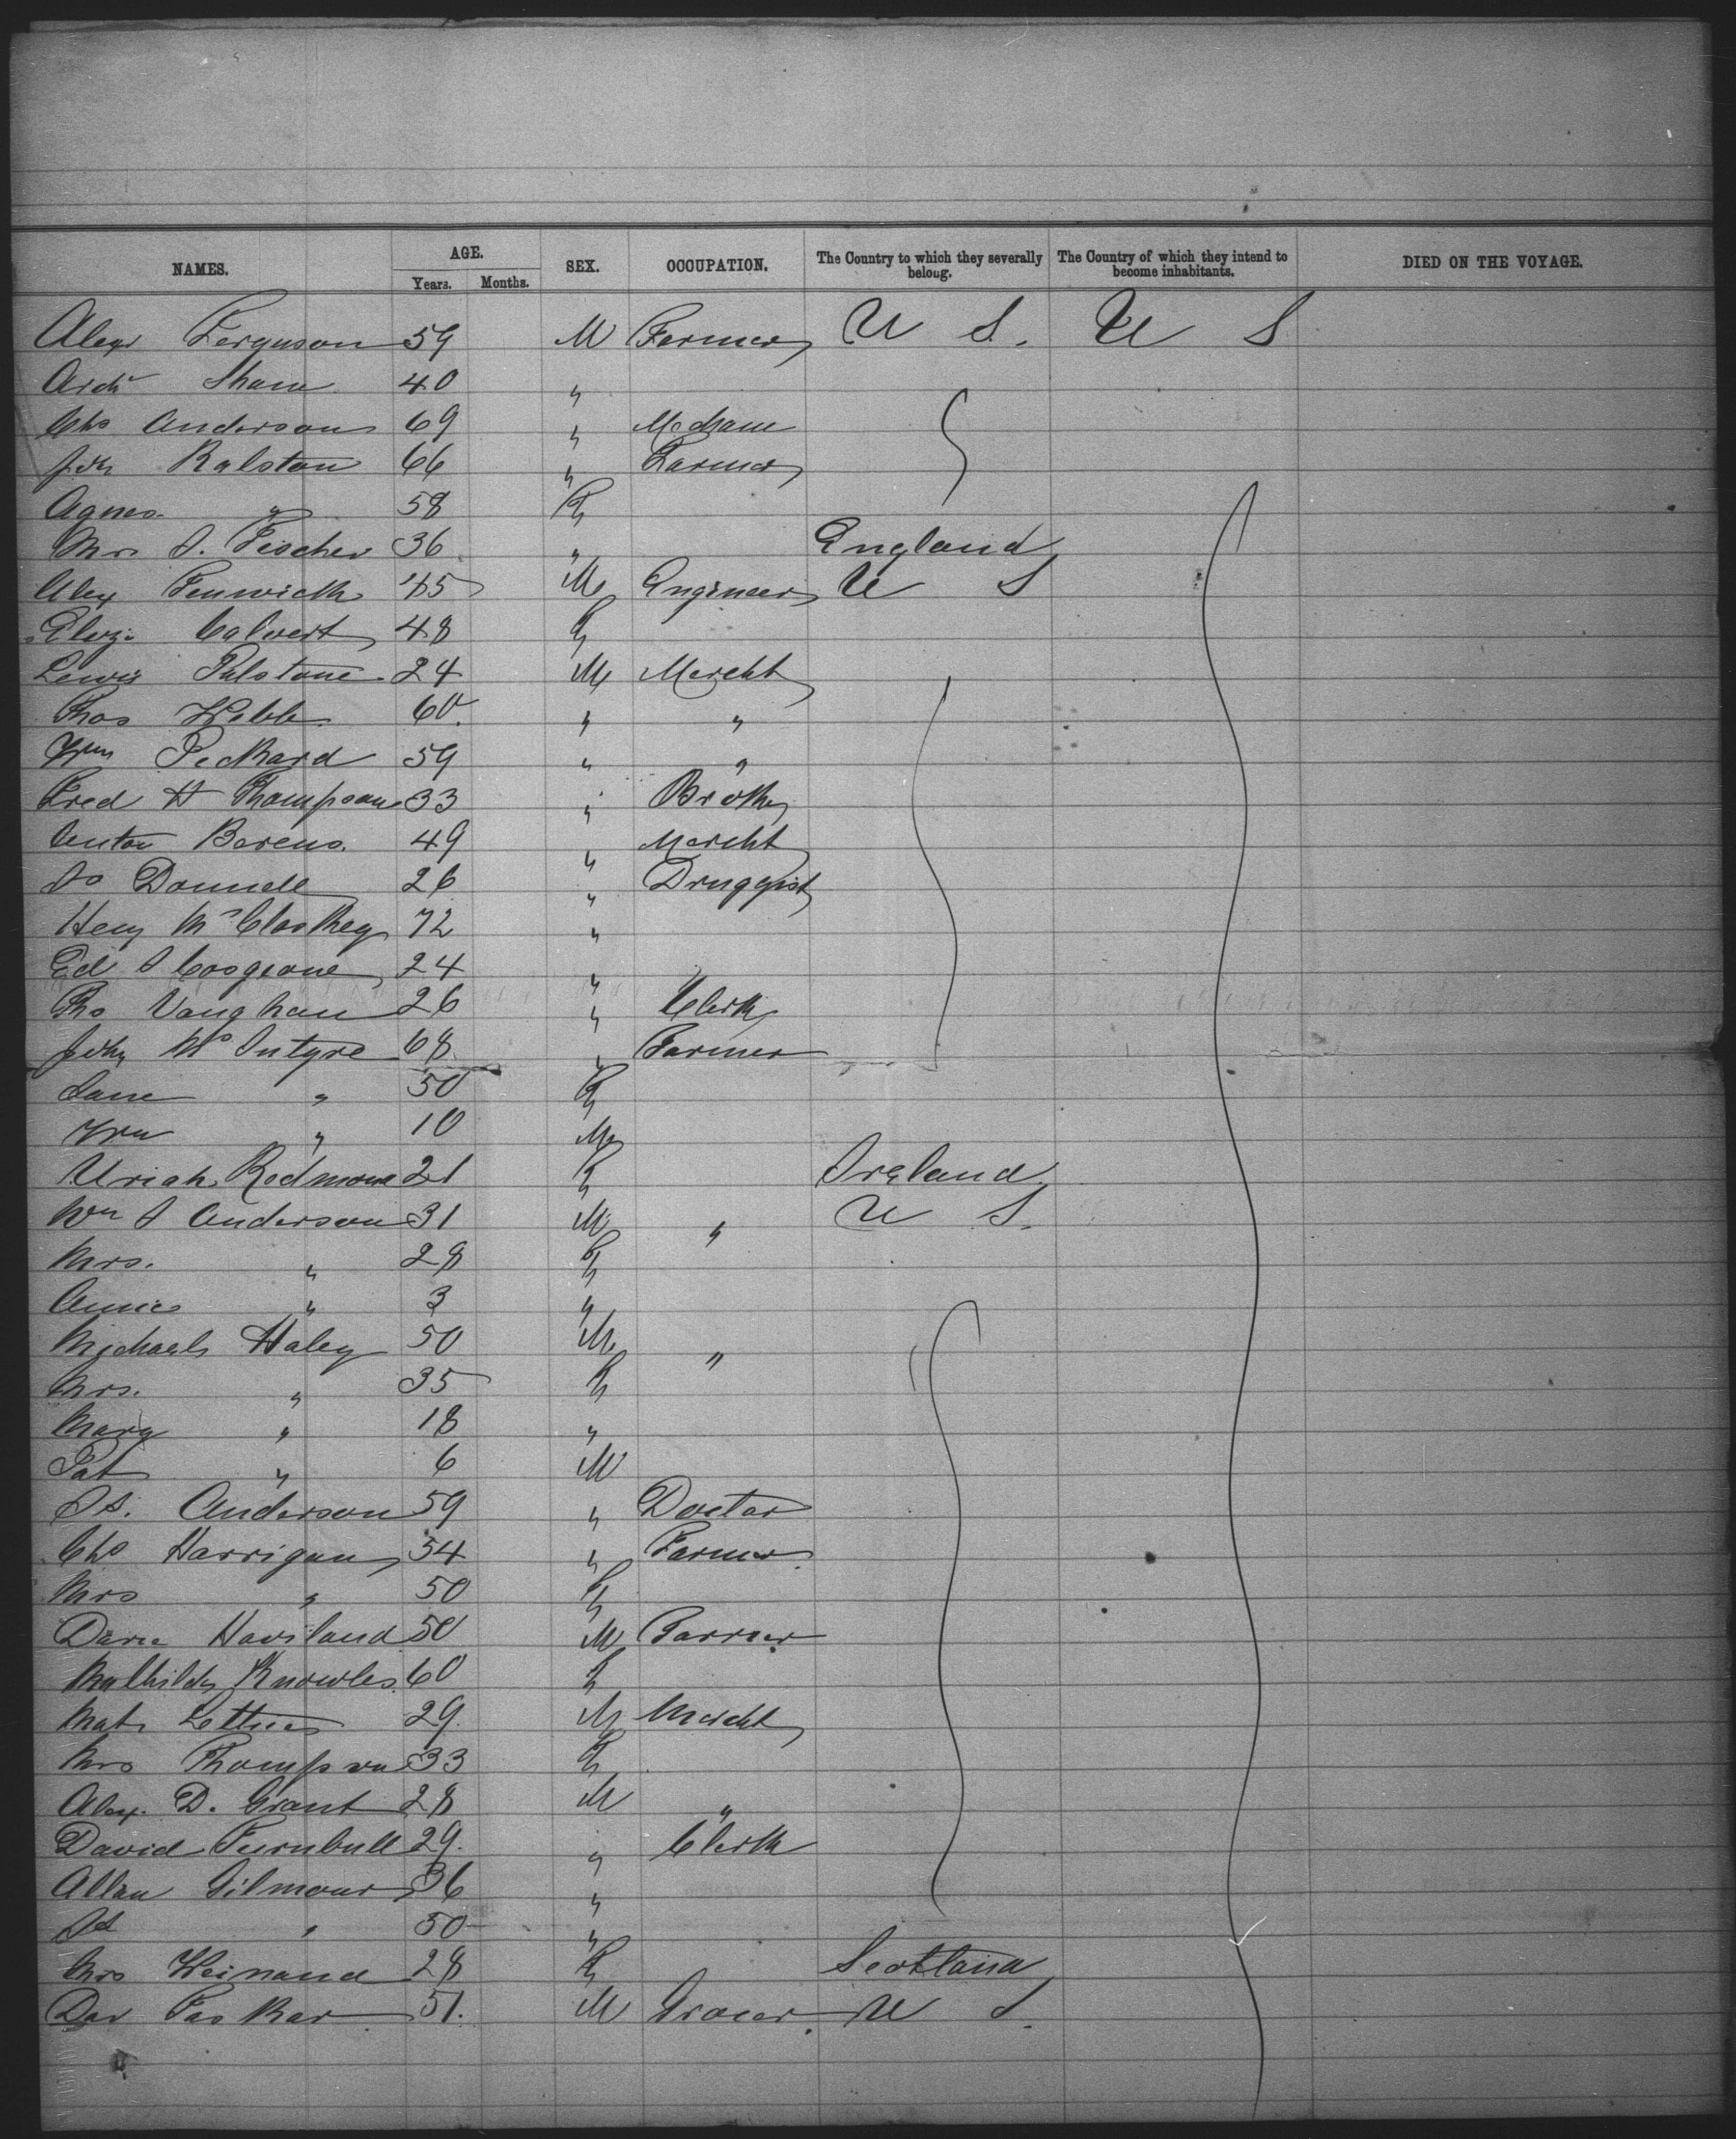 NAMES. AGE. SEX. OCCUPATION. The Country to which they severally belong. The Country of which they intend to become inhabitants. DIED ON THE VOYAGE.
Years. Months.
Alexr Ferguson 59 M Farmer U S. U S
Archd Shaw 40 "
Chs Anderson 69 " Mechanic
John Ralston 66 " Farmer
Agnes " 58 F
Mrs J. Fischer 36 " England
Alex Fenwick 45 M Engineer U S
Eliza Calvert 48 F
Lewis 24 M Mercht
Thos Webb 60 " "
Wm Peckard 59 " "
Fred H Thompson 33 "
Anton Berens 49 " Mercht
Js Donnell 26 " Druggist
Heny McCloskey 72 "
Ed J Cosgrove 24 "
Tho Vaughan 26 " Clerk
John McIntyre 68 " Farmer
Jane " 50 F
Wm " 10 M
Uriah Redmond 21 F Ireland
Wm J Anderson 31 M " U S.
Mrs. " 28 F
Annie " 3 "
Michael Haley 50 M "
Mrs. " 35 F
Mary " 18 "
Pat " 6 M
Js. Anderson 59 " Doctor
Chs Harrigan 54 " Farmer
Mrs " 50 F
Dave Haviland 50 M Farmer
Mathilda Knowles 60 F
Mat 29 M Mercht
Mrs Thompson 33 F
Alex. D. Grant 28 M "
David Turnbull 29 " Clerk
Allan Gilmour 36 "
Js " 30 "
Mrs Weinand 28 F Scotland
Dav Tasker 51. M Grocer. U S.